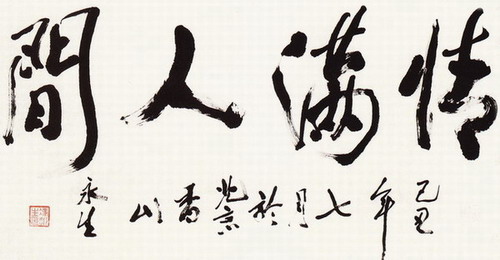 情满人間
己丑年七月於北京香山永生